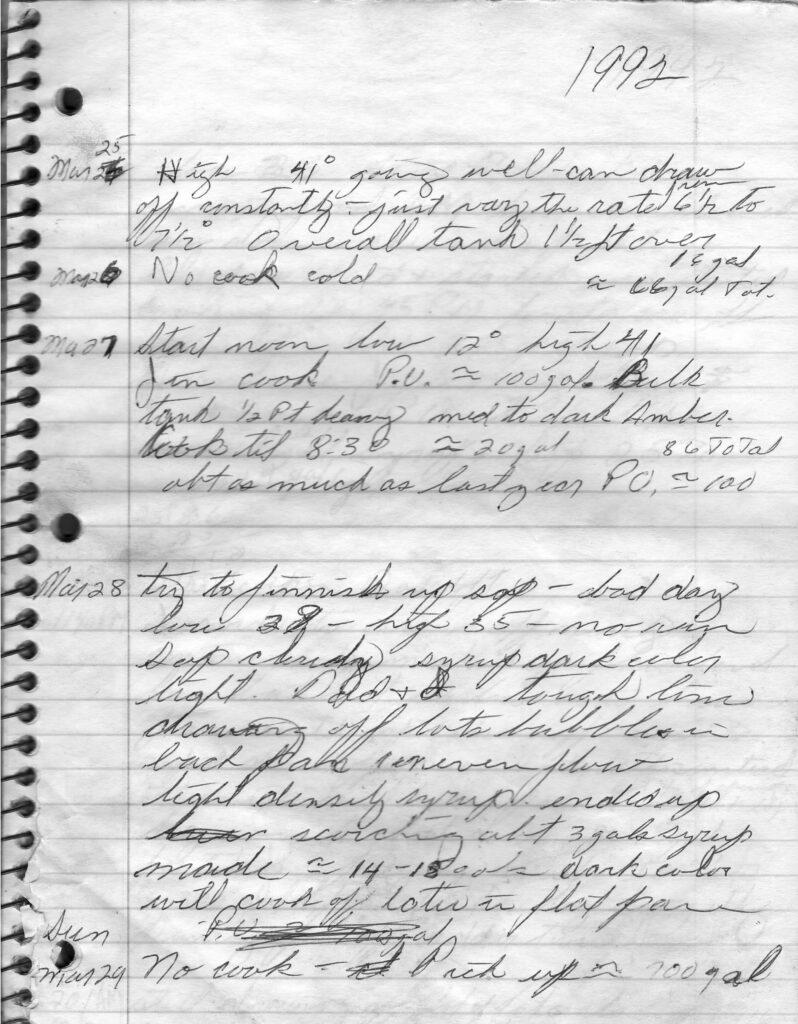 1992
Mar 25 High 41° going well-can draw
off constantly - just vary the rate from 6 1/2 to
7 1/2° Overall tank 1 1/2 ft over
Mar 26 No cook cold 18 gal
≈ 66 gal Tot.
Mar 27 Start noon low 12° high 41
Jim cook P.U. ≈ 100 gal. Bulk
tank 1/2 Pt heavy med to dark Amber.
Cook til 8:30 ≈ 20 gal 86 ToTal
abt as much as last year P.U. ≈ 100
Mar 28 try to finnish up sap - bad day
low 28 - high 35 - no run
Sap cloudy syrup dark color
light. Dad + I tough time
drawing off lots bubbles in
back pan uneven flow
light density syrup. ended up
scorching abt 3 gals syrup
made ≈ 14-15 gals dark color
will cook of later in flat pan
P.U. 100 gal
Sun
Mar 29 No cook - Pick up ≈ 700 gal